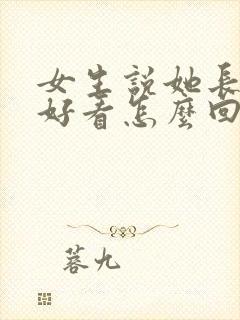 女生說她長
好看怎麼回
蓉九